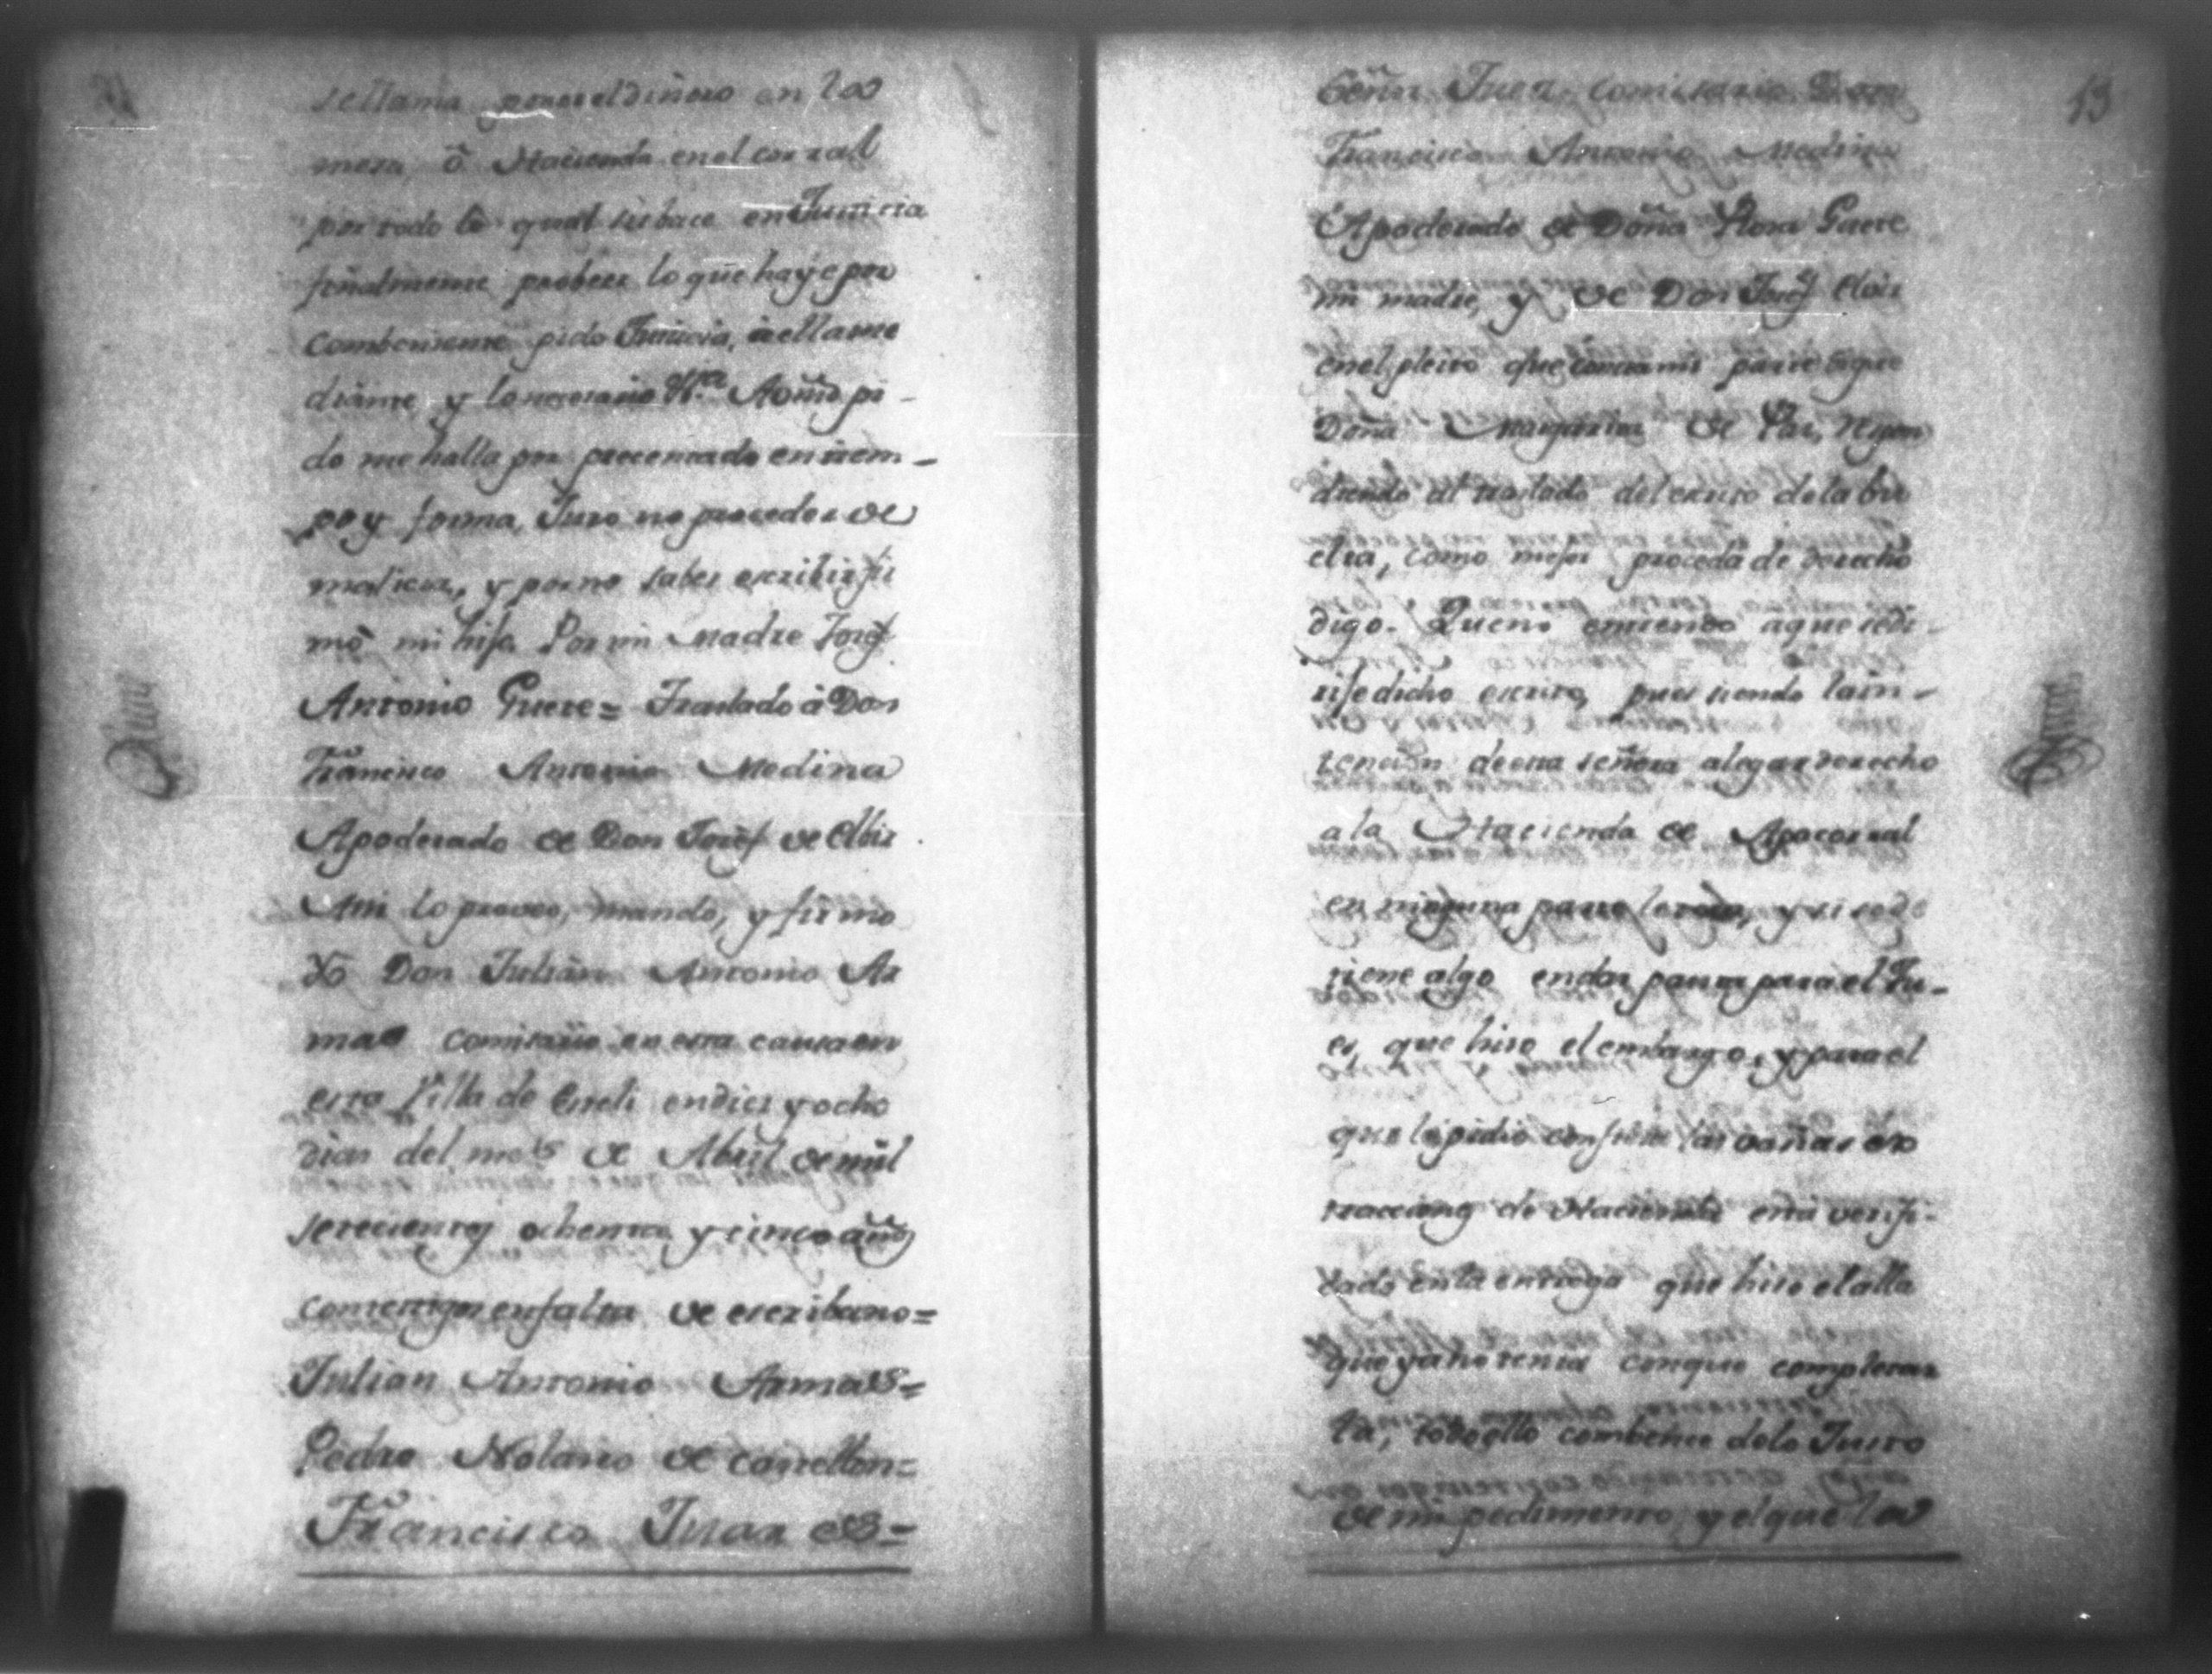 se llama poner el dinero en la
mesa, ô Hacienda en el corral
por todo lo qual se sirbace en Justicia
finalmente probeer lo que haye por
combeniente, pido Justicia,
y lo necesario &ra. pi-
do me halla por precentado en tiem-
po y forma, Juro no proceder de
malicia, y por no saber escribir fir
mô mi hijo Por mi Madre Josef
Antonio Guete = Traslado â Don
Francisco Antonio Medina
Apoderado de Don Josef de Elbir
Assi lo proveo, mando, y firmo
Yo Don Julian Antonio Ar
mas comisario en esta causa en
esta Villa de Esteli en dies y ocho
dias del mes de Abril de mil
setecientos ochenta y cinco años
con testigos en falta de escribano =
Julian Antonio Armas =
Pedro Nolasco de Castellon =
Francisco Juares =
13
Señor Juez comisario Don
Francisco Antonio Medina
Apoderado de Doña Flora Guete
mi madre, y de Don Josef Elbir
en el pleito que contra mi parte sigue
Doña Margarita de Paz, respon
diendo al traslado del escrito de la bu
elta, como mejor proceda de derecho
digo. Que no entiendo a que se di-
rije dicho escrito, pues siendo la in-
tencion de esta señora alegar derecho
a la Hacienda de Apocorral
en ninguna parte lo toca, y si se de
tiene algo en dar pauta para el Ju-
es, que hiso el embargo, y para el
que lo pidio
de Hacienda está verifi-
cado en la entrega que hiso el alla
que ya no tenia con que completar
la, todo ello combence de lo Justo
de mi pedimento, y el que la